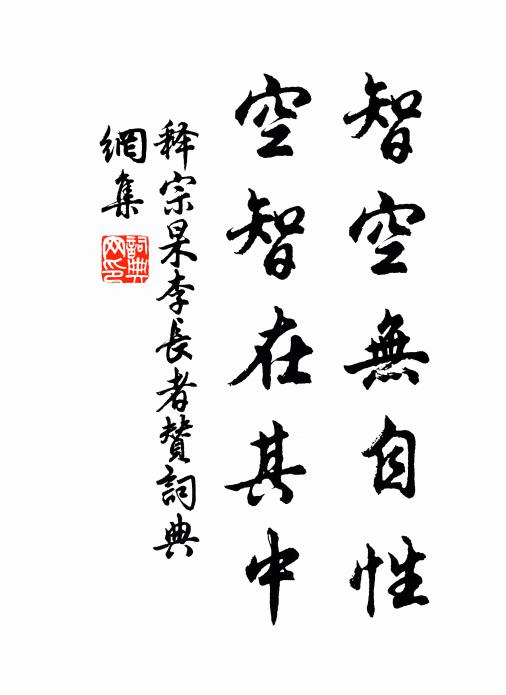 智空無自性
空智在其中
释宗杲李長者贊詞典
網集
詞典網印